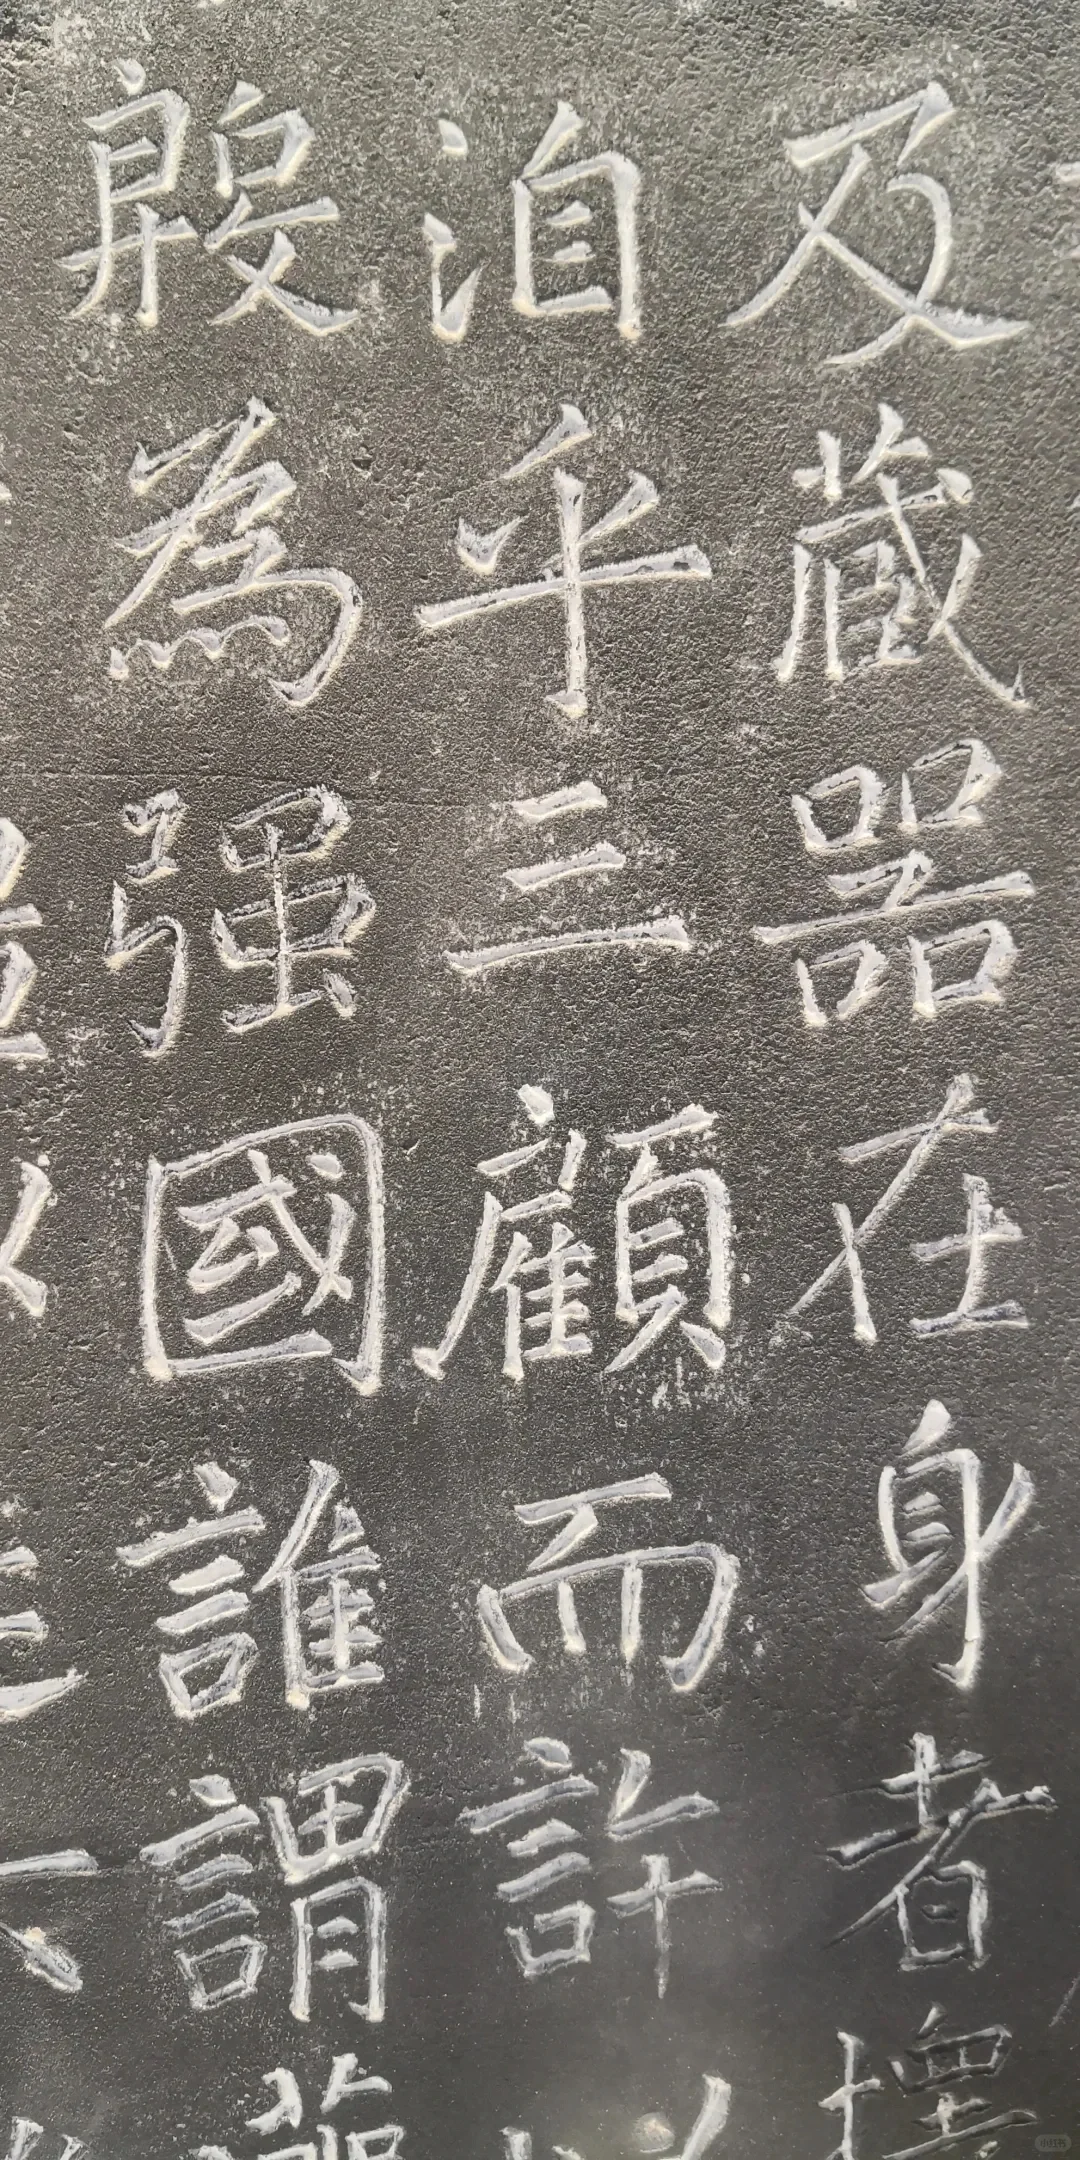 及藏器在身者
洎乎三顧而許
殷為强國誰謂